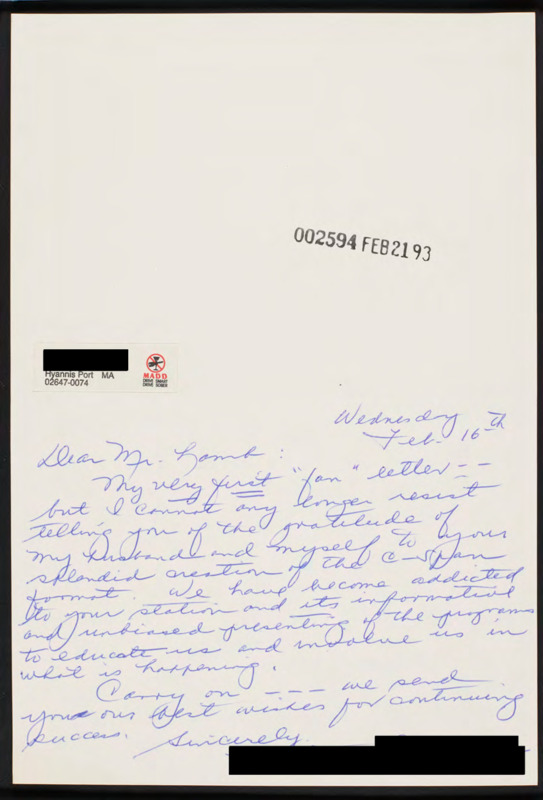 002594 FEB 21 93
Hyannis Port MA
02647-0074
MADD
DRIVE SMART
DRIVE SOBER
Wednesday
Feb. 16th
Dear Mr. Lamb:
My very first "fan" letter --
but I cannot any longer resist
telling you of the gratitude of
my husband and myself to your
splendid creation of the C-Span
format. We have become addicted
to your station and its informative
and unbiased presenting of the programs
to educate us and involve us in
what is happening.
Carry on --- we send
you our best wishes for continuing
success.
Sincerely,